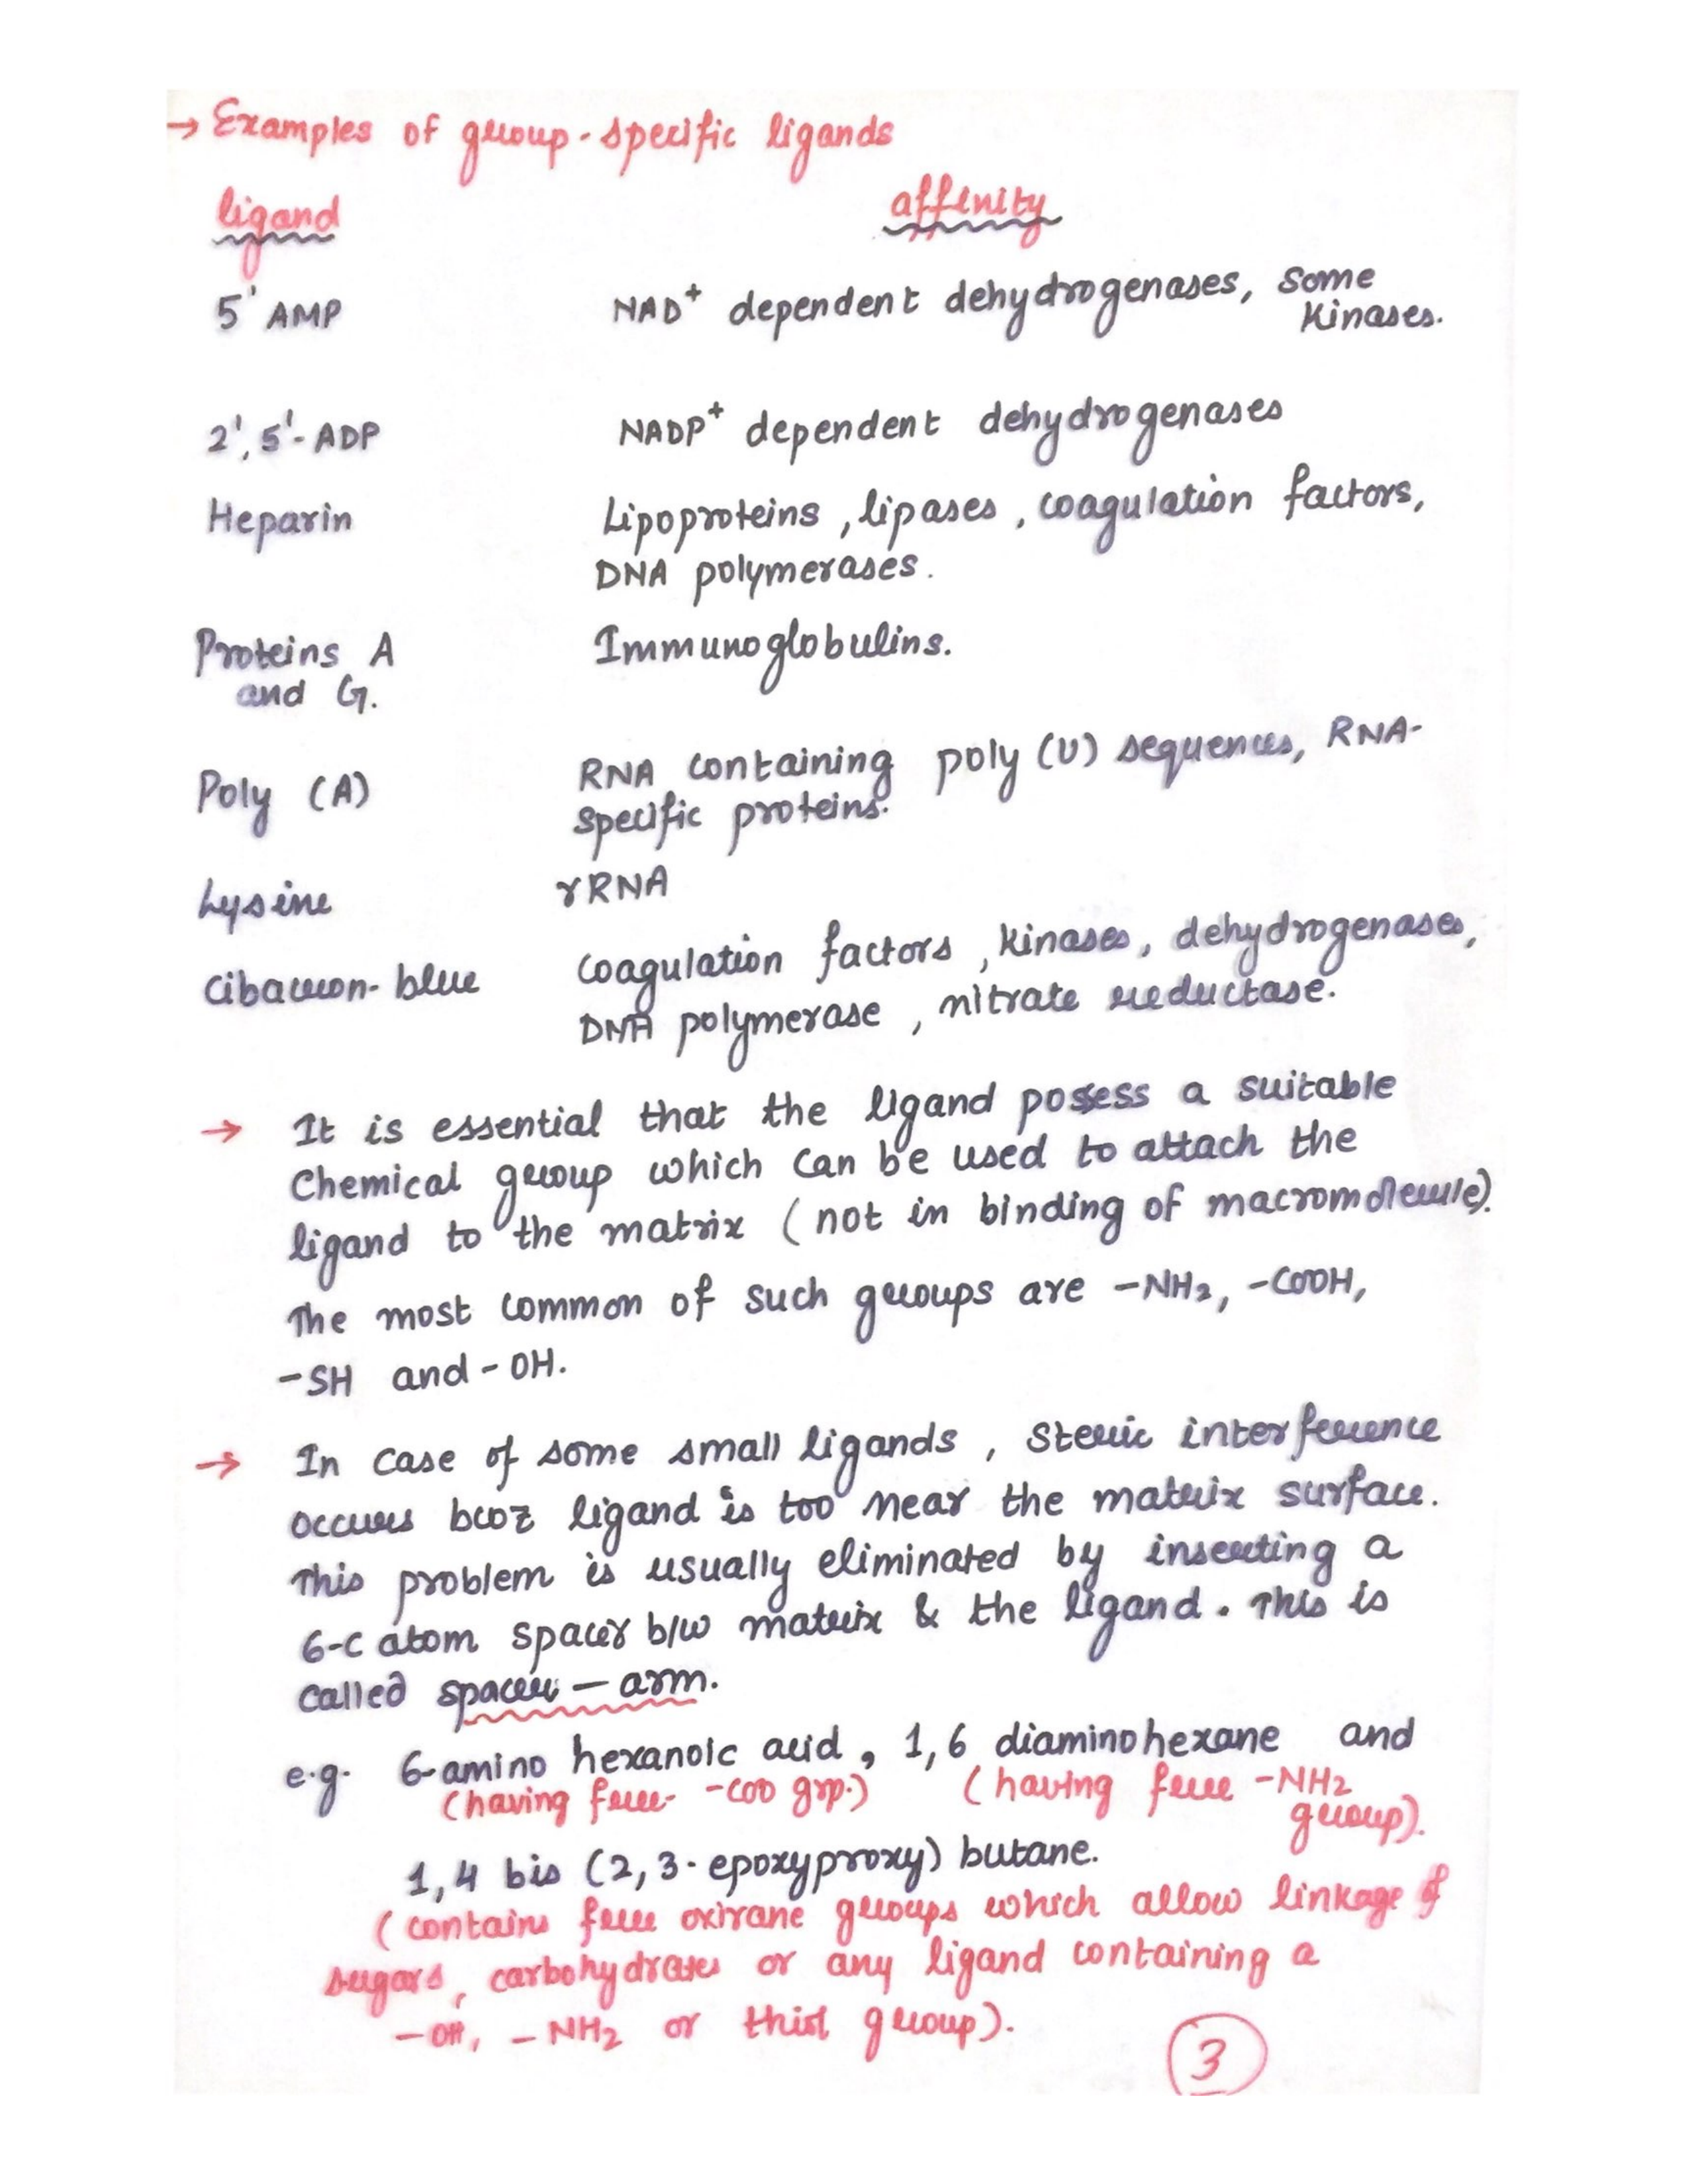 → Examples of group-specific ligands
ligand affinity
5' AMP NAD+ dependent dehydrogenases, Some
Kinases.
2', 5'- ADP NADP+ dependent dehydrogenases
Heparin Lipoproteins, lipases, coagulation factors,
DNA polymerases.
Proteins A Immunoglobulins.
and G.
Poly (A) RNA containing poly (U) sequences, RNA-
specific proteins.
Lysine rRNA
Cibacron-blue Coagulation factors, kinases, dehydrogenases,
DNA polymerase, nitrate reductase.
→ It is essential that the ligand possess a suitable
Chemical group which can be used to attach the
ligand to the matrix (not in binding of macromolecule).
The most common of such groups are -NH2, -COOH,
-SH and -OH.
→ In case of some small ligands, steric interference
occurs bcoz ligand is too near the matrix surface.
This problem is usually eliminated by inserting a
6-C atom spacer b/w matrix & the ligand. This is
called spacer - arm.
e.g. 6-amino hexanoic acid, 1,6 diaminohexane and
(having free -COO grp.) (having free -NH2
group).
1,4 bis (2,3-epoxyproxy) butane.
(contains free oxirane groups which allow linkage of
sugars, carbohydrates or any ligand containing a
-OH, -NH2 or thiol group).
3